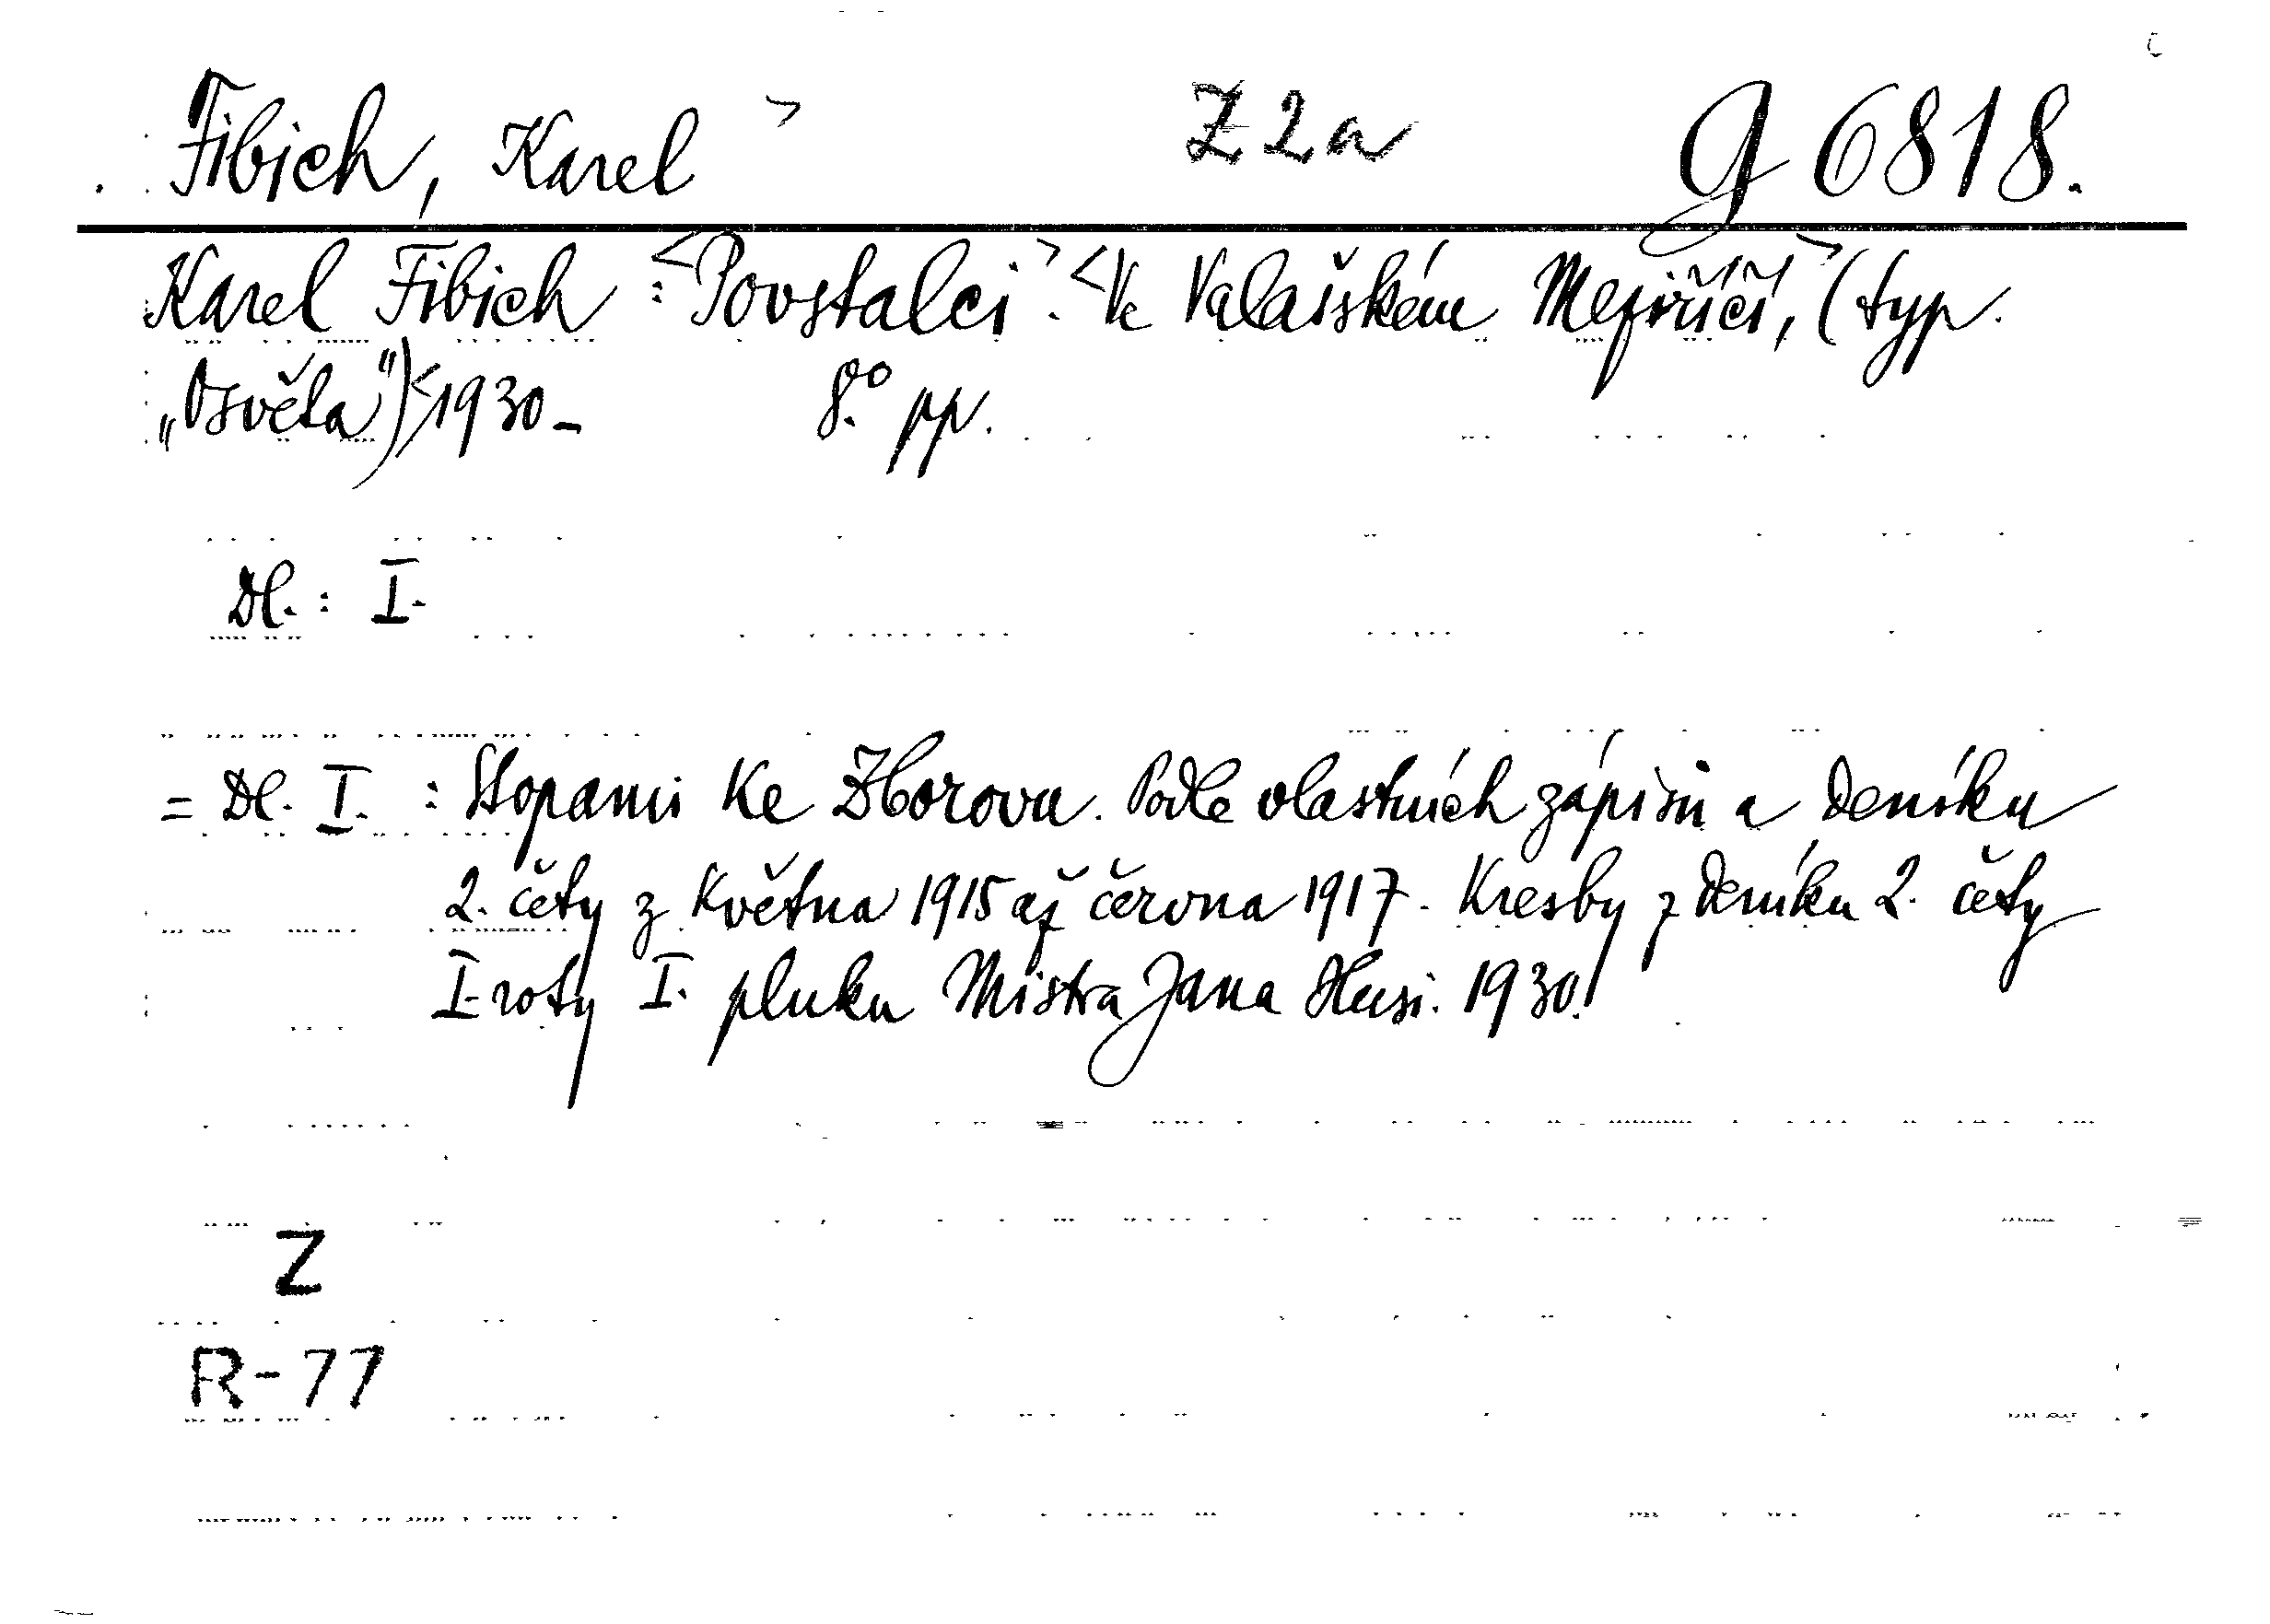 Fibich, Karel > Z 2a G 6818.
Karel Fibich : <Povstalci>. <Ve Valašském Meziříčí,> (typ.
„Osvěta“) <1930- 8.° pp.
Dl. : I.
= Dl. I. : Stopami ke Zborovu. Podle vlastních zápisů a deníku
2. čety z května 1915 až června 1917. Kresby z deníku 2. čety
I. roty I. pluku Mistra Jana Husi. 1930.
Z
R-77